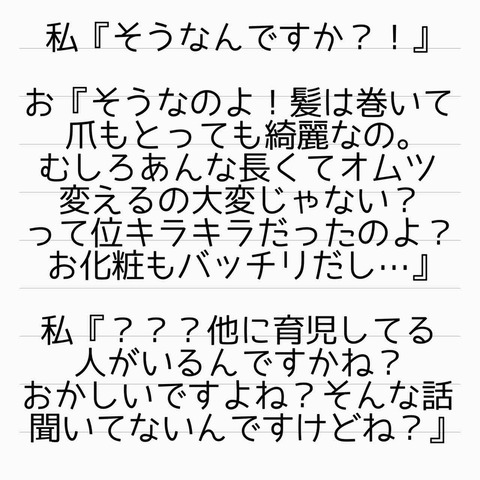 私『そうなんですか？！』
お『そうなのよ！髪は巻いて
爪もとっても綺麗なの。
むしろあんな長くてオムツ
変えるの大変じゃない？
って位キラキラだったのよ？
お化粧もバッチリだし…』
私『？？？他に育児してる
人がいるんですかね？
おかしいですよね？そんな話
聞いてないんですけどね？』